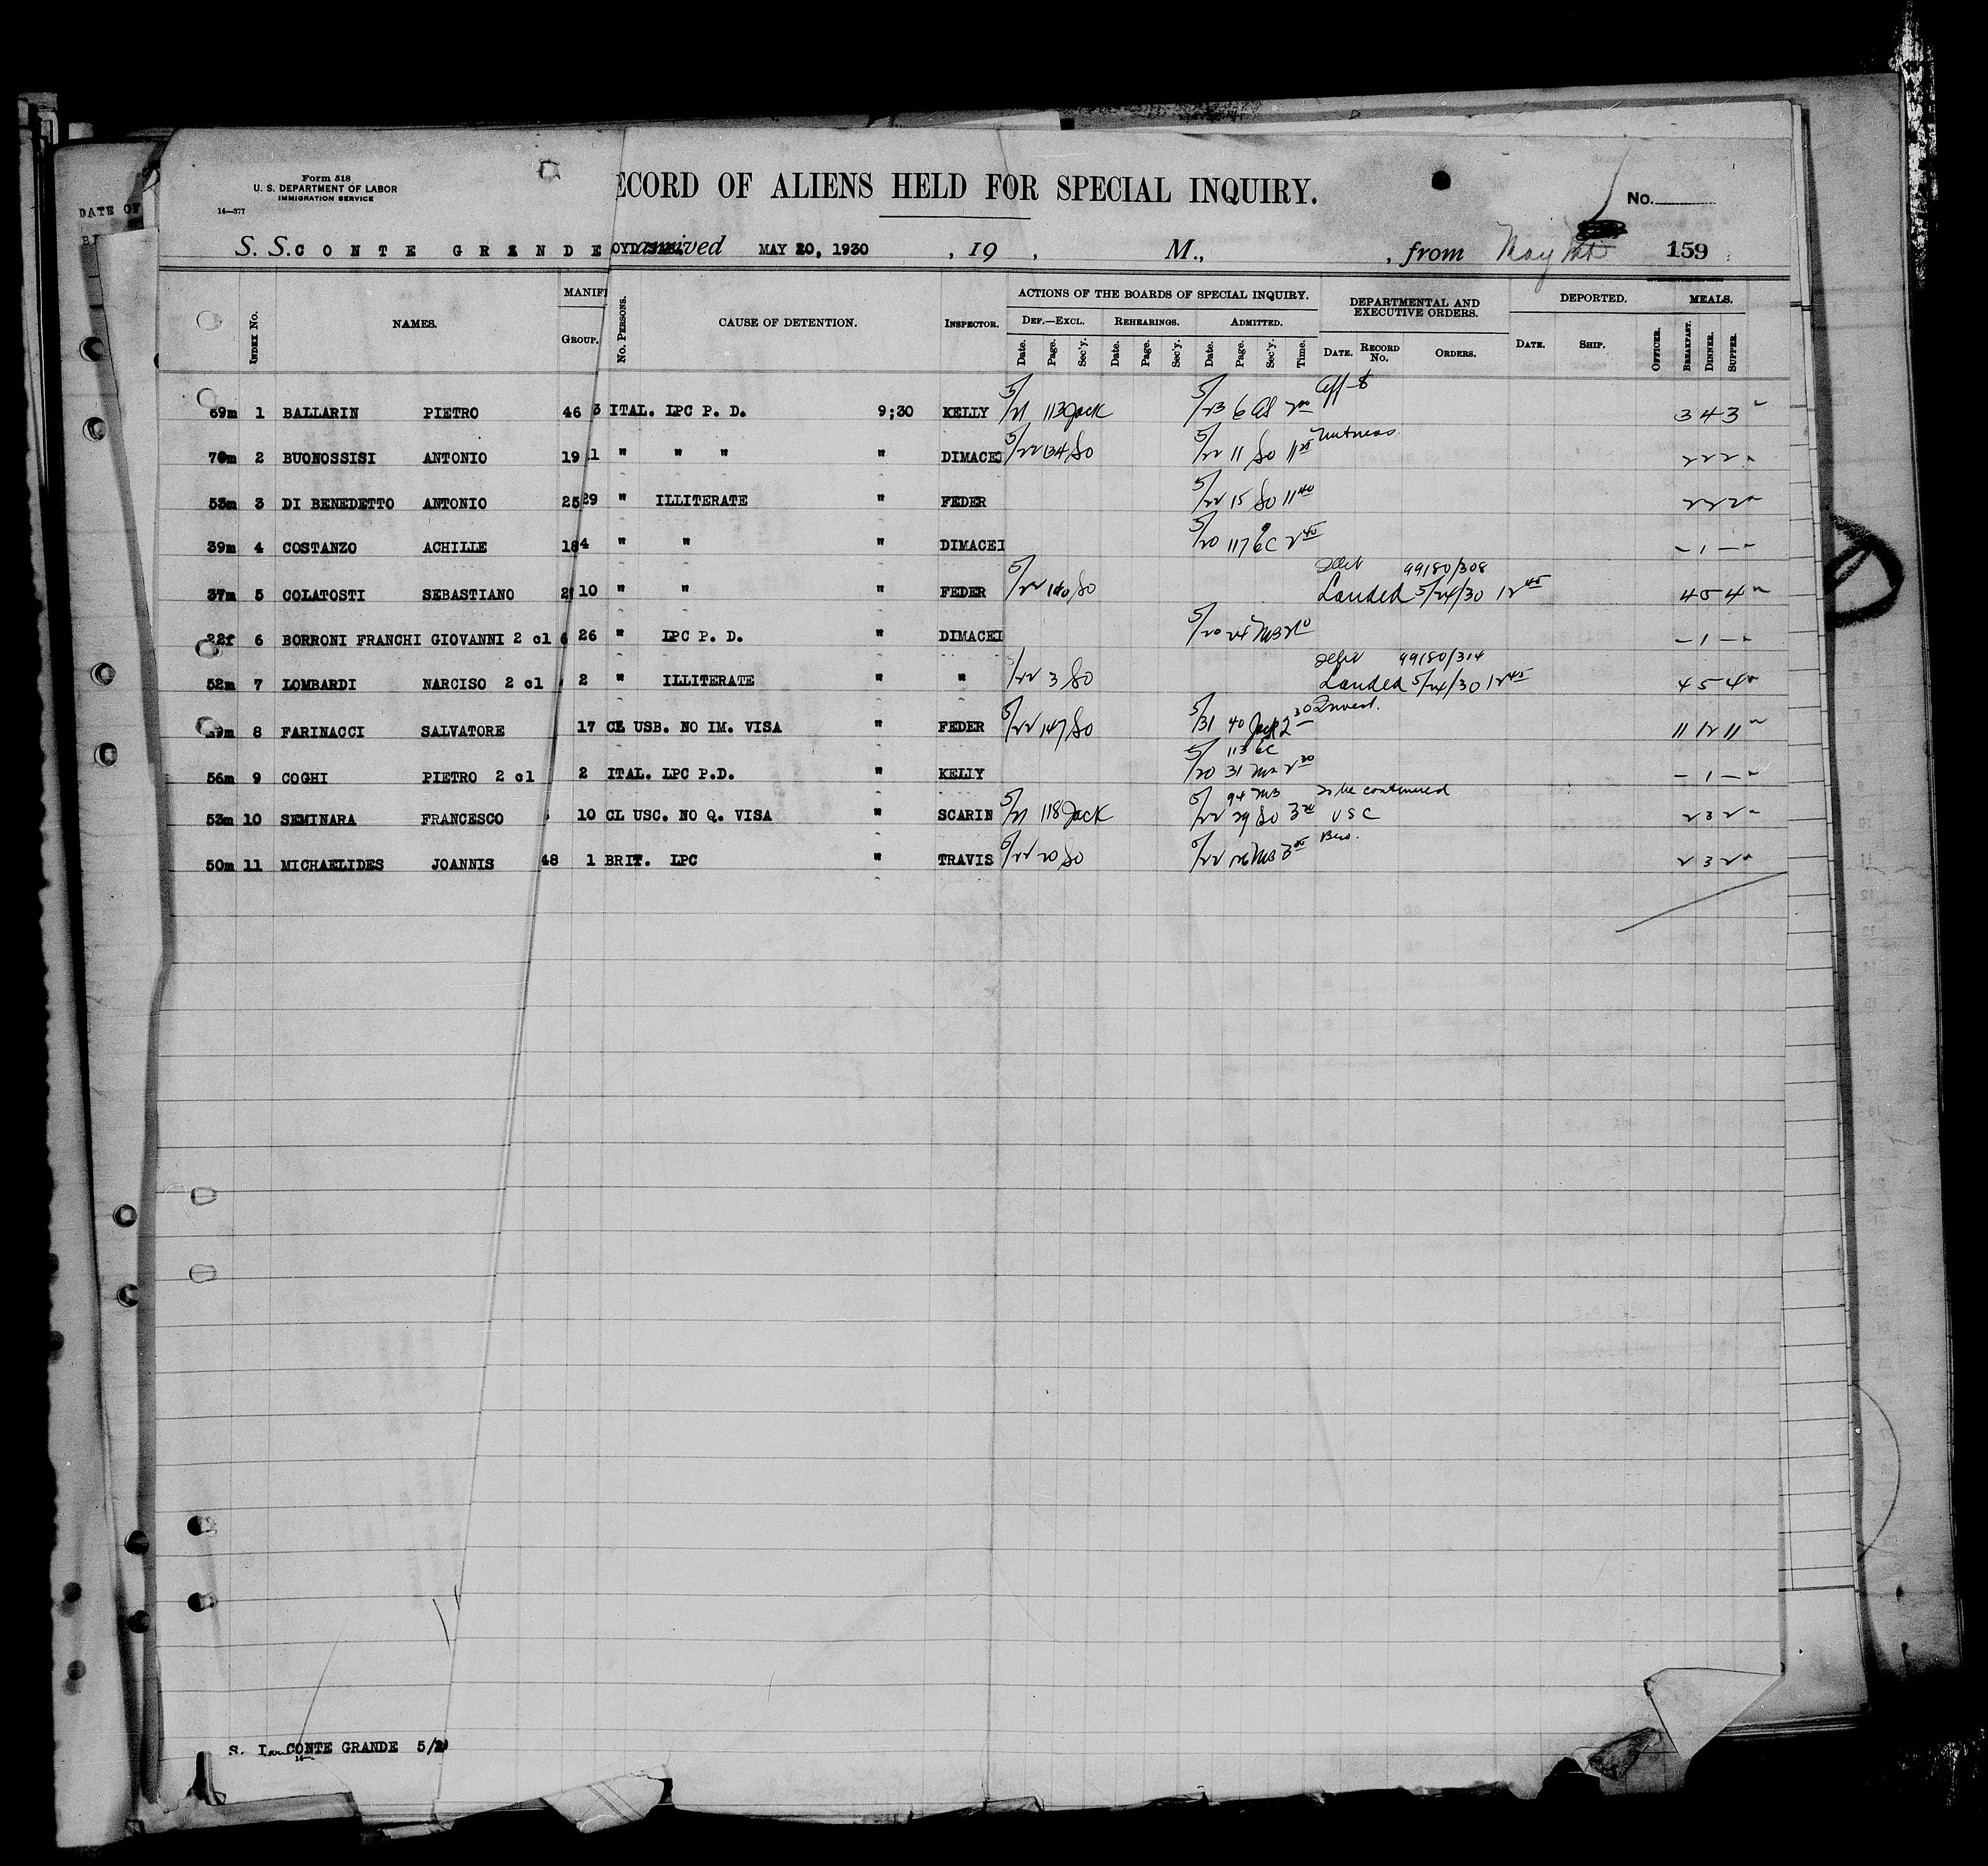 Form 518
U. S. DEPARTMENT OF LABOR
IMMIGRATION SERVICE
14—377
DATE OF
ECORD OF ALIENS HELD FOR SPECIAL INQUIRY.
No.
S. S. CONTE GRANDE arrived MAY 20, 1930 , 19 , M., , from 159
INDEX No. NAMES. MANIF GROUP. No. PERSONS. CAUSE OF DETENTION. INSPECTOR. ACTIONS OF THE BOARDS OF SPECIAL INQUIRY. DEPARTMENTAL AND EXECUTIVE ORDERS. DEPORTED. MEALS.
DEF.—EXCL. REHEARINGS. ADMITTED.
Date. Page. Sec'y. Date. Page. Sec'y. Date. Page. Sec'y. Time. DATE. RECORD No. ORDERS. DATE. SHIP. OFFICER. BREAKFAST. DINNER. SUPPER.
69m 1 BALLARIN PIETRO 46 3 ITAL. LPC P. D. 9;30 KELLY 5/21 113 Jack 5/23 6 3 4 3
70m 2 BUONOSSISI ANTONIO 19 1 " " " " DIMACEI 5/22 134 SO 5/22 11 SO Witness 2 2 2
53m 3 DI BENEDETTO ANTONIO 25 29 " ILLITERATE " FEDER 5/22 15 SO 11 40 2 2 2
39m 4 COSTANZO ACHILLE 18 4 " " " DIMACEI 5/20 117 6C 2 40 — 1 —
99180/308
37m 5 COLATOSTI SEBASTIANO 10 " " " FEDER 5/22 140 SO Landed 5/24/30 12 45 4 5 4
22f 6 BORRONI FRANCHI GIOVANNI 2 cl 26 " LPC P. D. " DIMACEI 5/20 24 MB — 1 —
99180/314
52m 7 LOMBARDI NARCISO 2 cl 2 " ILLITERATE " " 5/22 3 SO Landed 5/24/30 12 45 4 5 4
9m 8 FARINACCI SALVATORE 17 CL USB. NO IM. VISA " FEDER 5/22 147 SO 5/31 40 Jack 2 30 11 12 11
113 6C
56m 9 COGHI PIETRO 2 cl 2 ITAL. LPC P.D. " KELLY 5/20 31 — 1 —
94 MB To be continued
53m 10 SEMINARA FRANCESCO 10 CL USC. NO Q. VISA " SCARIN 5/21 118 Jack 5/22 29 SO USC 2 3 2
50m 11 MICHAELIDES JOANNIS 48 1 BRIT. LPC " TRAVIS 5/22 20 SO 5/22 MB Bro. 2 3 2
CONTE GRANDE 5/2